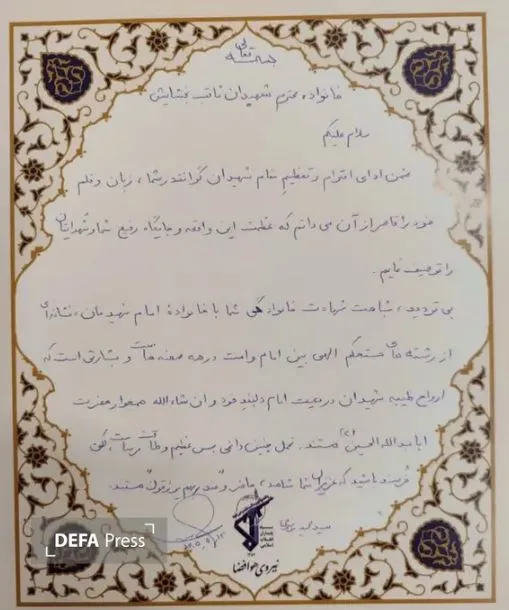 بسمه تعالی
خانواده محترم شهیدان نائب بخشایش
سلام علیکم
ضمن ادای احترام و تعظیم مقام شهیدان گرانقدر شما، زبان و قلم
خود را قاصر از آن می دانم که عظمت این واقعه و جایگاه رفیع شما و شهدایتان
را توصیف نمایم.
بی تردید، شباهت شهادت خانوادگی شما با خانوادهٔ امام شهیدمان، نشانه‌ای
از رشته های مستحکم الهی بین امام و امت در همه صحنه هاست و بشارتی است که
ارواح طیبه شهیدان در معیت امام دلبند خود و ان شاءالله همجوار حضرت
اباعبدالله الحسین (ع) هستند. تحمل چنین داغی بس عظیم و طاقت
خرسند باشید که عزیزان شما شاهد، حاضر و "عند ربهم یرزقون" هستند.
سید مجید
نیروی هوافضا
DEFA Press